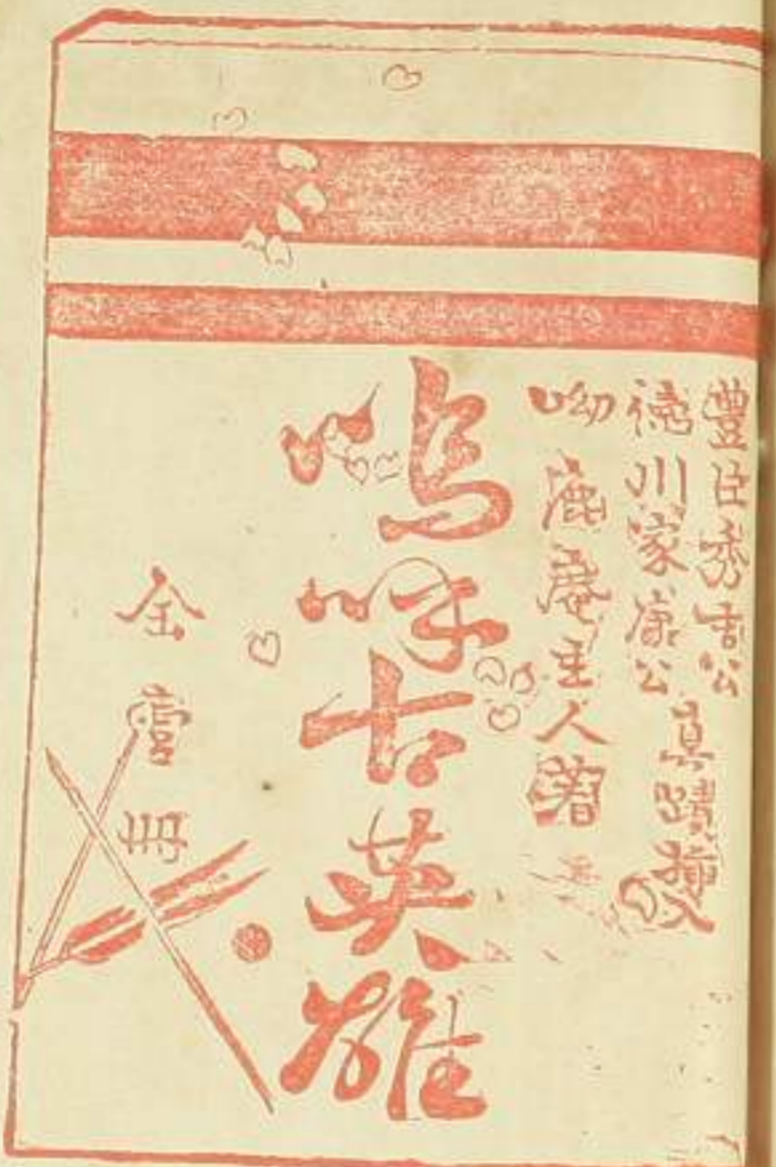 豐臣秀吉公
徳川家康公
真蹟挿入
呦鹿菴主人著
嗚呼古英雄
全壹冊